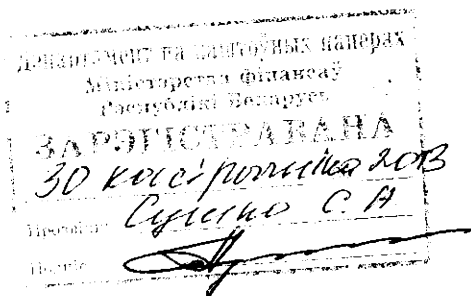 Дэпартамент па каштоўных паперах
Міністэрства фінансаў
Рэспублікі Беларусь
ЗАРЭГІСТРАВАНА
30 кастрычніка 2013
Сушко С. А
Подпіс